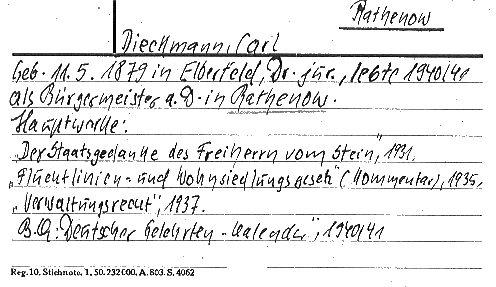 Rathenow
Dieckmann, Carl
Geb. 11.5.1879 in Elberfeld, Dr. jur., lebte 1940/41
als Bürgermeister a.D. in Rathenow.
Hauptwerke:
„Der Staatsgedanke des Freiherrn vom Stein", 1931.
„Fluchtlinien- und Wohnsiedlungsgesetz" (Kommentar), 1935,
„Verwaltungsrecht", 1937.
B.Q.: Deutscher Gelehrten-Kalender", 1940/41
Reg. 10. Stichnote. 1. 50. 232 000. A. 803. S. 4062